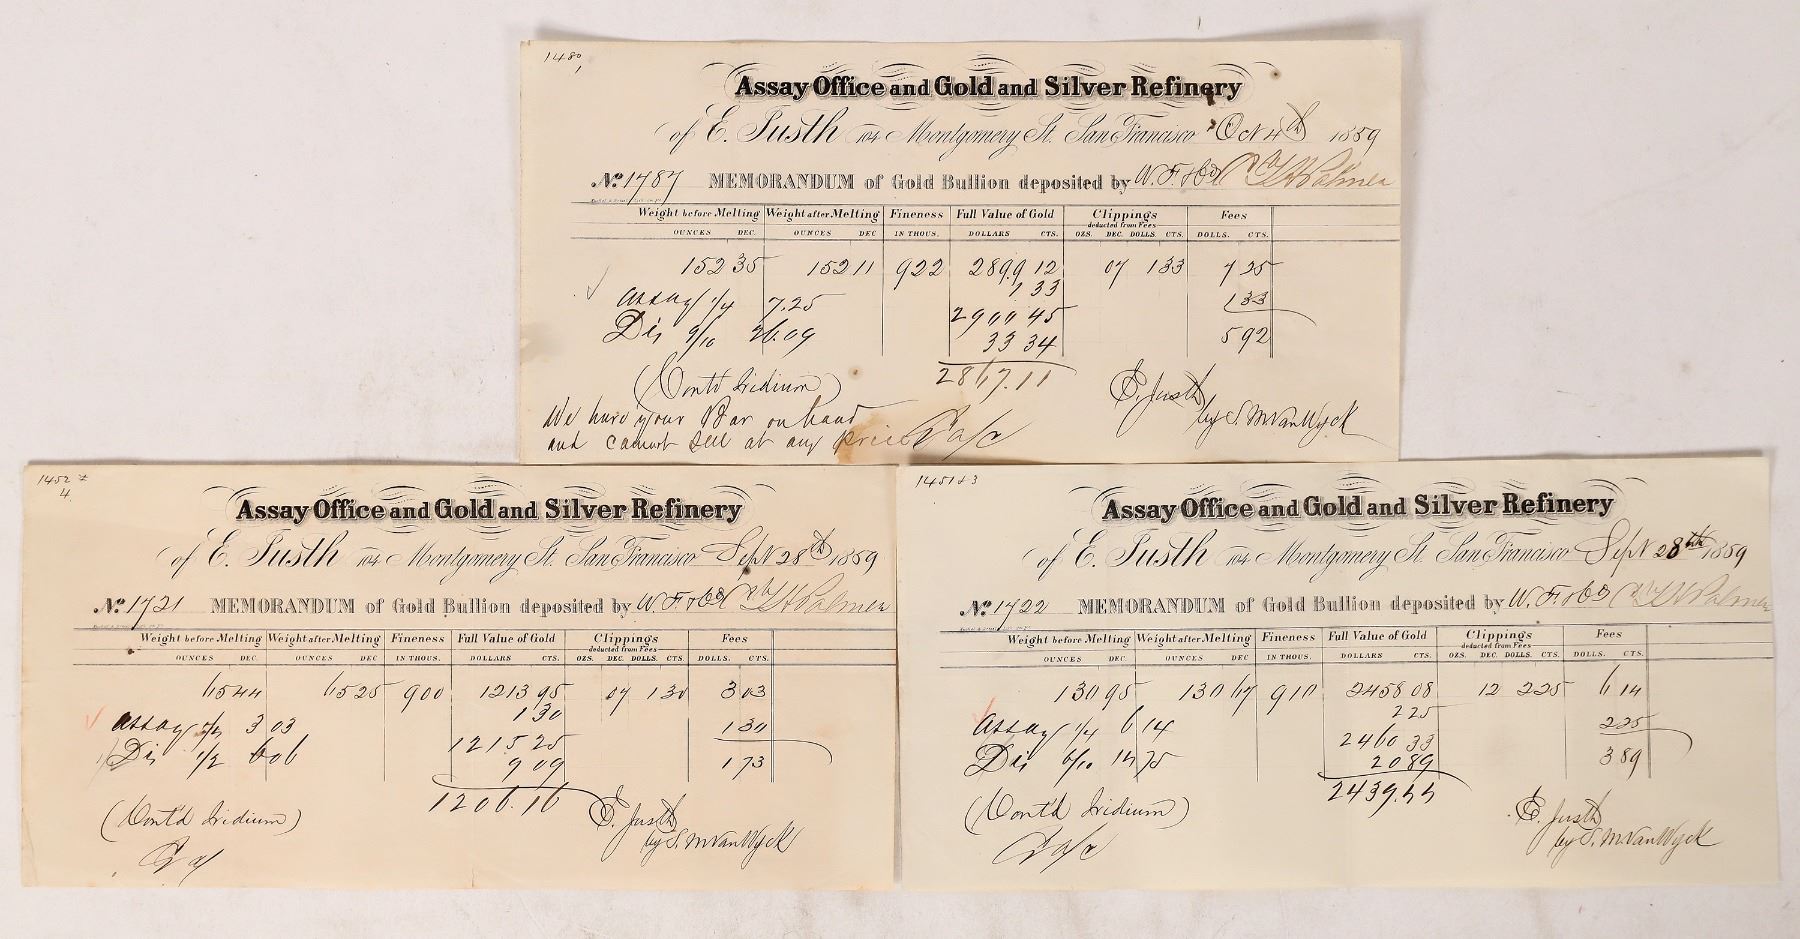 1480
1
Assay Office and Gold and Silver Refinery
of E. Justh 104 Montgomery St. San Francisco Oct 4th 1859
No. 1787 MEMORANDUM of Gold Bullion deposited by W. F. & Co p T H Palmer
Weight before Melting Weight after Melting Fineness Full Value of Gold Clippings Fees
deducted from Fees
OUNCES DEC. OUNCES DEC IN THOUS. DOLLARS CTS. OZS. DEC. DOLLS. CTS. DOLLS. CTS.
152 35 152 11 922 2899 12 07 1 33 7 25
1 33
Assay 1/4 7.25 1 33
2900 45
Dis 9/10 26.09 5 92
33 34
2867.11
(Cont'd Iridium) E. Justh
by S. M. Van Wyck
We have your Bar on hand
and cannot sell at any price
1452
4
Assay Office and Gold and Silver Refinery
of E. Justh 104 Montgomery St. San Francisco Sept 28th 1859
No. 1721 MEMORANDUM of Gold Bullion deposited by W. F. & Co p T H Palmer
Weight before Melting Weight after Melting Fineness Full Value of Gold Clippings Fees
deducted from Fees
OUNCES DEC. OUNCES DEC IN THOUS. DOLLARS CTS. OZS. DEC. DOLLS. CTS. DOLLS. CTS.
65 44 65 25 900 1213 95 07 1 30 3 03
1 30
Assay 3 03 1 30
1215 25
Dis 1/2 6 06 1 73
9 09
1206.16
(Cont'd Iridium) E. Justh
by S. M. Van Wyck
1451 & 3
Assay Office and Gold and Silver Refinery
of E. Justh 104 Montgomery St. San Francisco Sept 28th 1859
No. 1722 MEMORANDUM of Gold Bullion deposited by W. F. & Co p T H Palmer
Weight before Melting Weight after Melting Fineness Full Value of Gold Clippings Fees
deducted from Fees
OUNCES DEC. OUNCES DEC IN THOUS. DOLLARS CTS. OZS. DEC. DOLLS. CTS. DOLLS. CTS.
130 95 130 67 910 2458 08 12 2 25 6 14
2 25
Assay 1/4 6 14 2 25
2460 33
Dis 6/10 14 75 3 89
20 89
2439.44
(Cont'd Iridium) E. Justh
by S. M. Van Wyck